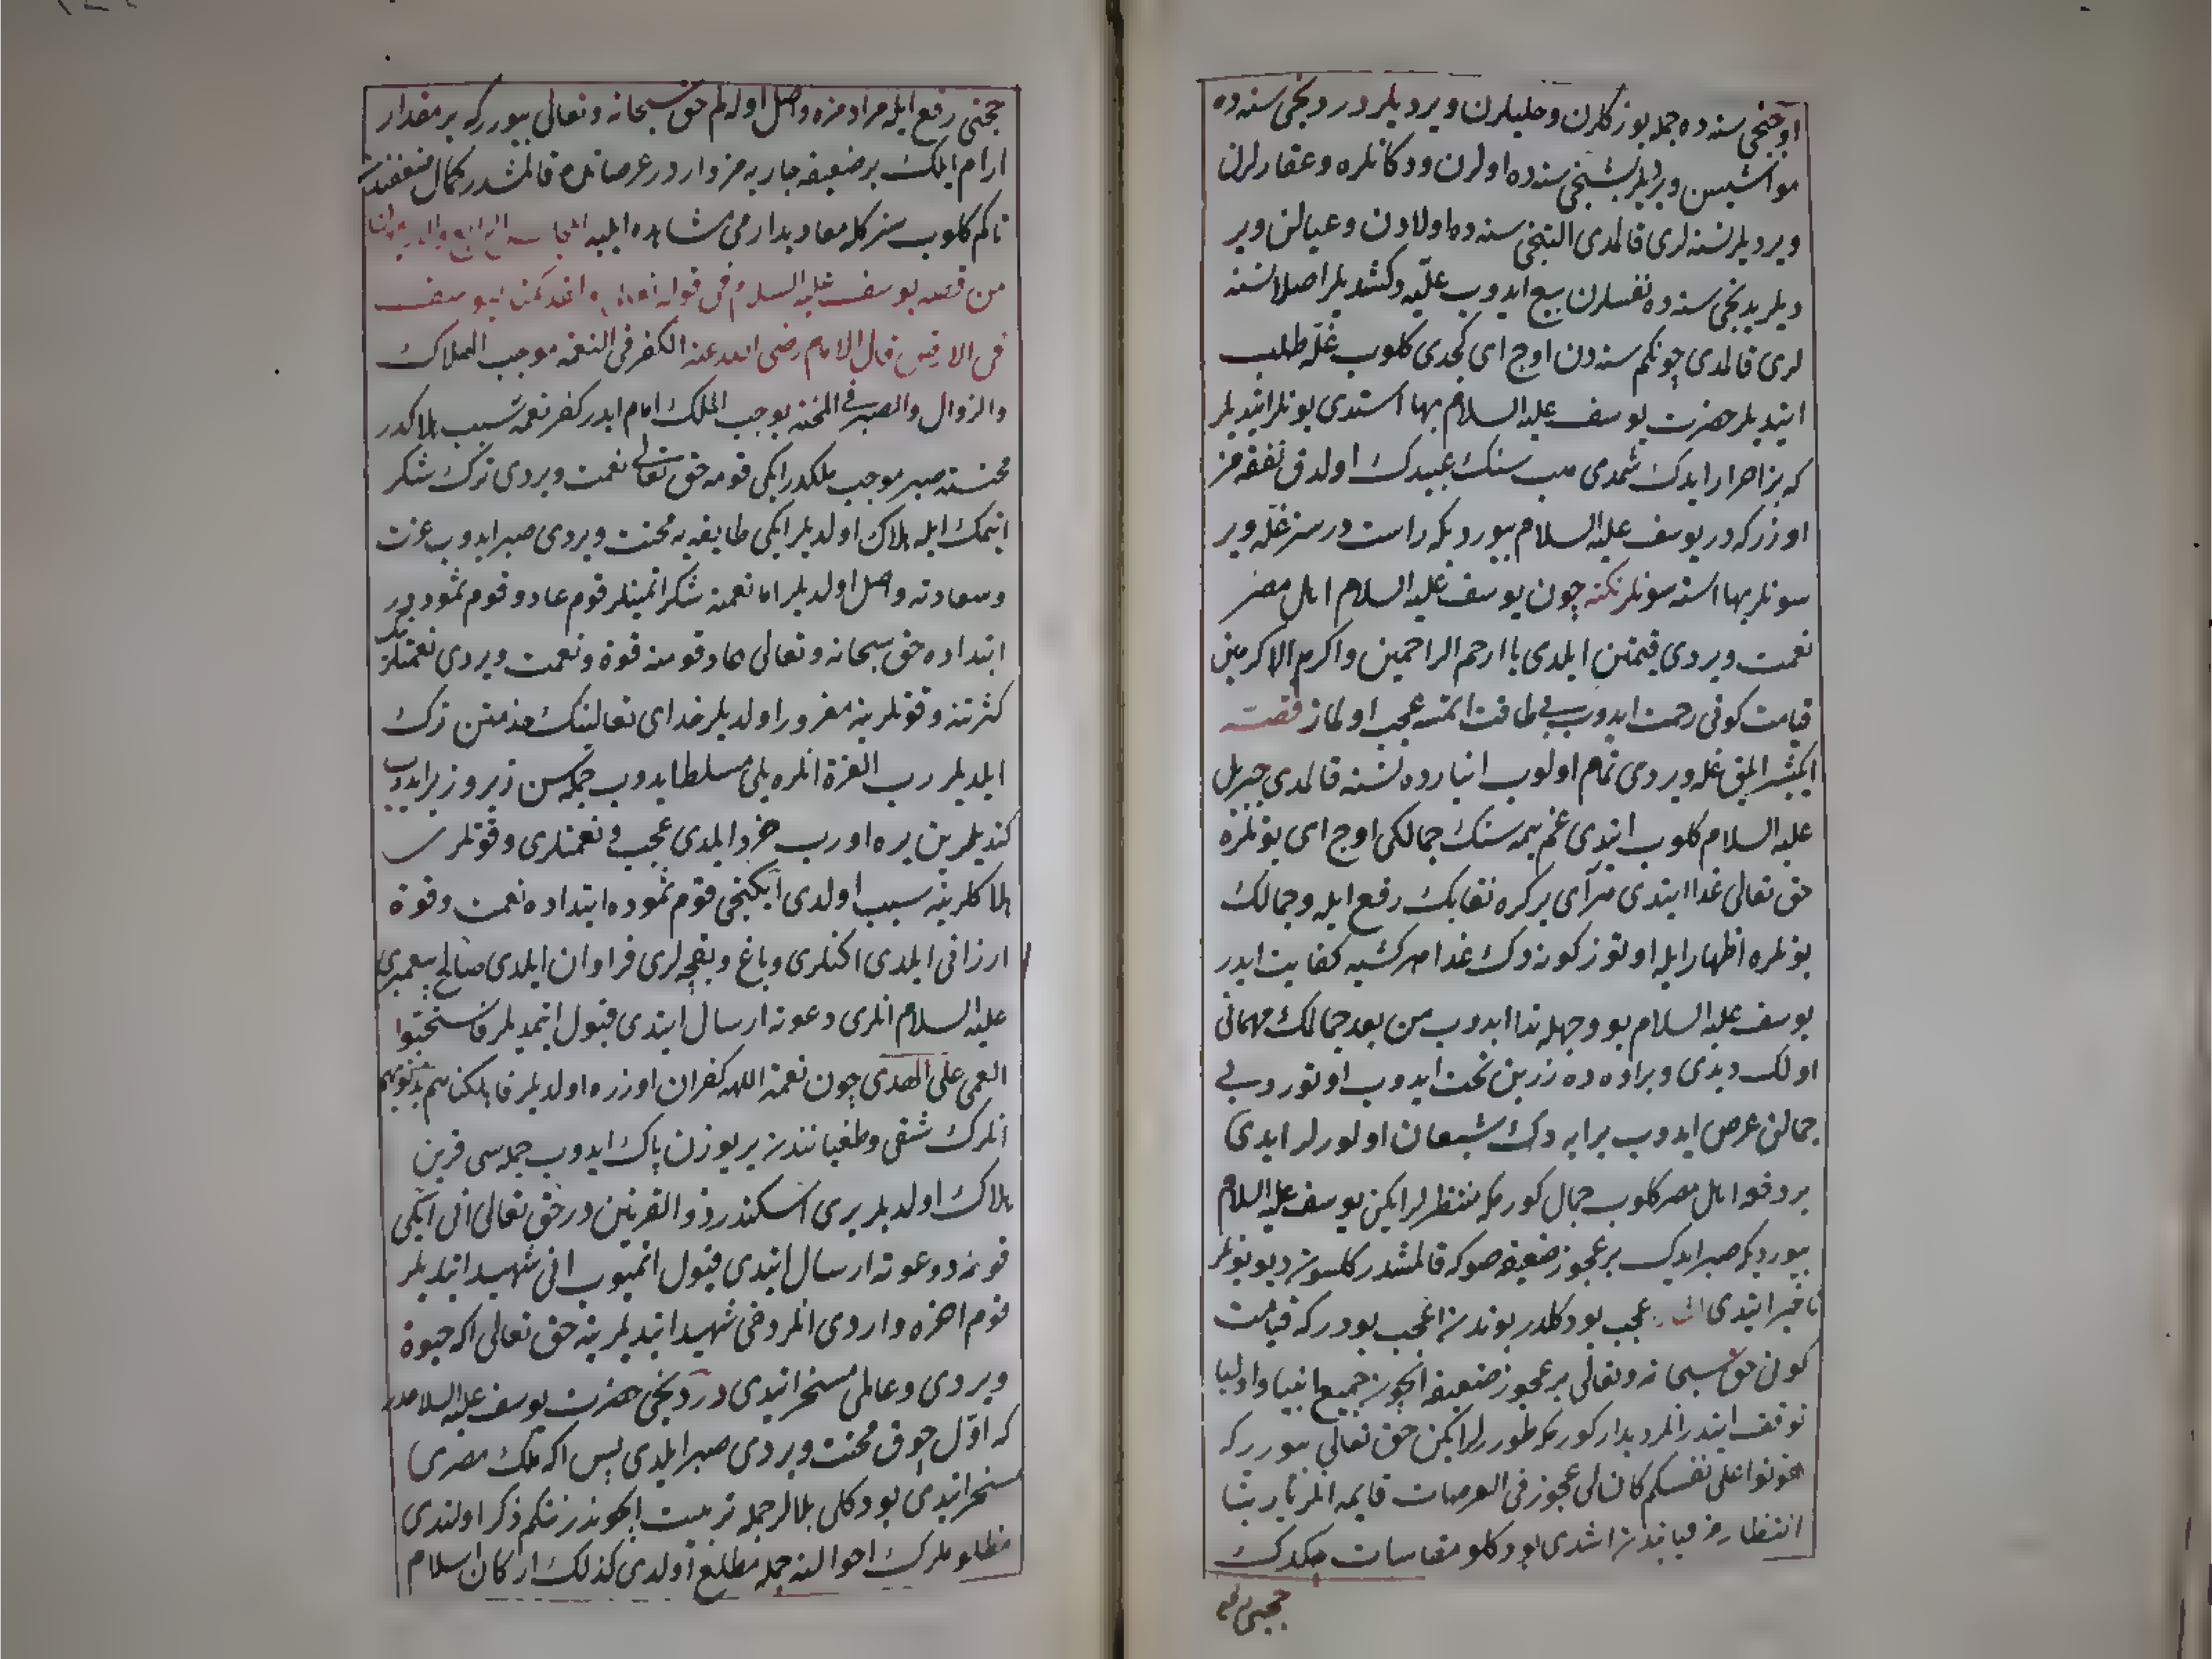 اوچنجی سنه ده جمله بوزكلرن وحلیلرن ویردیلر دردنجی سنه ده
مواشیسن ویردیلر بشنجی سنه ده اولرن ودكانلره وعقارلرن
ویردیلر نسنه لری قالمدی التنجی سنه ده اولادن وعیالن ویر
دیلر یدنجی سنه ده نفسلرن بیع ایدوب غلّیه دكشدیلر اصلا نسنه
لری قالمدی چونكم سنه دن اوج ای كچدی كلوب غلّه طلب
ایتدیلر حضرت یوسف علیه السلام بها استدی بونلر ایتدیلر
كه بز احرار ایدك شمدی هب سنك عبیدك اولدق نفقه مز
اوزركه در یوسف علیه السلام بیوردیكه راست درسز غلّه ویر
سونلر بها استه سونلر نكته چون یوسف علیه السلام اهل مصر
نعمت ویردی قیمتن ایلدی یا ارحم الراحمین واكرم الاكرمین
قیامت كونی رحمت ایدوب بی طاقت اتمسه عجب اولماز قصّه
غله ویردی تمام اولوب انبارده نسنه قالمدی جبریل
علیه السلام كلوب ایتدی غم یمه سنك جمالكی اوج ای بونلره
حق تعالی غدا ایتدی هر آی بر كره نقابك رفع ایله وجمالك
بونلره اظهار ایله اوتوز كونه دك غدا هر كشیه كفایت ایدر
یوسف علیه السلام بو وجهله ندا ایدوب من بعد جمالك مهمانی
اولك دیدی وبراوه ده زرین تخت ایدوب اوتوردی
جمالن عرض ایدوب بر ایه دك شبعان اولورلر ایدی
بر دفعه اهل مصر كلوب جمال كورمكه منتظرلر ایكن یوسف علیه السلام
بیوردیكه صبر ایدك بر عجوز ضعیفه صوكه قالمشدر كلسون دیو بونلر
تأخیر ایتدی عجب بو دكلدر بوندن اعجب بودر كه قیامت
كونی حق سبحانه وتعالی بر عجوز ضعیفه ایچون جمیع انبیا واولیا
توقف ایتدر انلر دیدار كورمكه طورلر ایكن حق تعالی بیورر كه
هونوا علی نفسكم كان لی عجوز فی العرصات قایمه انلر یا ربنا
انتظارمز قیاندن اشدی بو دكلو مقاسات چكدك
حجبی رفع
حجبی رفع ایله مرادمزه واصل اوله لم حق سبحانه وتعالی بیورركه بر مقدار
ارام ایلك بر ضعیفه جاریه مز واردر عرصاتده قالمشدر كمال ضعفندن
تاكم كلوب سزكله معا دیدارمی مشاهده ایلیه المجلس الرابع والاربعون
من قصه یوسف علیه السلام فی قوله تعالی وكذلك مكنا لیوسف
فی الارض قال الامام رضی الله عنه الكفر فی النعمه موجب الهلاك
والزوال والصبر فی المحنه یوجب الملك امام ایدر كفر نعمه سبب هلاكدر
محنته صبر موجب ملكدر ایكی قومه حق تعالی نعمت ویردی ترك شكر
اتمك ایله هلاك اولدیلر ایكی طایفه یه محنت ویردی صبر ایدوب عزت
وسعادته واصل اولدیلر اما نعمته شكر اتمینلر قوم عاد وقوم ثموددر
ابتداده حق سبحانه وتعالی عاد قومنه قوة ونعمت ویردی نعمتلرنك
كثرتنه وقوتلرینه مغرور اولدیلر خدای تعالینك خدمتن ترك
ایلدیلر رب العزة انلره یلی مسلط ایدوب جمله سن زیر وزبر ایدوب
كندیلرین یره اوروب خرد ایلدی عجب نعمتلری وقوتلری
هلاكلرینه سبب اولدی ایكنجی قوم ثموده ابتداده نعمت وقوة
ارزانی ایلدی اكنلری وباغ وبغچه لری فراوان ایلدی صالح پیغمبری
علیه السلام انلری دعوته ارسال ایتدی قبول ایتمدیلر فاستحبوا
العمی علی الهدی چون نعمة الله كفران اوزره اولدیلر فاهلكناهم بذنوبهم
انلرك شقی وطغیانندن یر یوزن پاك ایدوب جمله سی قرین
هلاك اولدیلر بری اسكندر ذو القرنین در حق تعالی انی ایكی
قومه دعوته ارسال ایتدی قبول اتمیوب انی شهید ایتدیلر
قوم اخره واردی انلر دخی شهید ایتدیلر ینه حق تعالی اكه حیوة
ویردی وعالمی مسخر ایتدی دردنجی حضرت یوسف علیه السلامدر
كه اوّل چوق محنت ویردی صبر ایلدی پس اكه ملك مصری
مسخر ایتدی بو دكلی بلالر جمله تربیت ایچوندر نتكم ذكر اولندی
مظلوملرك احوالنه جمله مطلع اولدی كذلك اركان اسلام